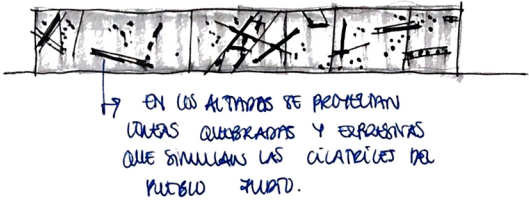 EN LOS ALZADOS SE PROYECTAN
LÍNEAS QUEBRADAS Y EXPRESIVAS
QUE SIMULAN LAS CICATRICES DEL
PUEBLO JUDÍO.